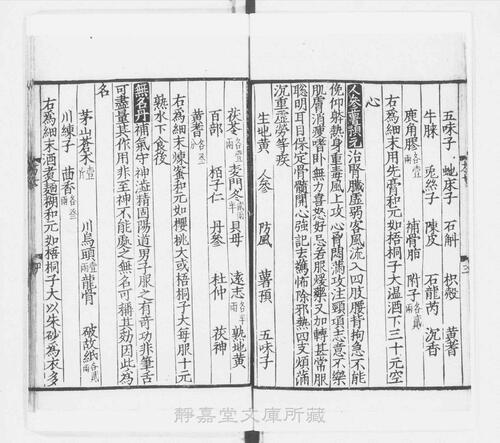 五味子 虵床子 石斛 枳殻 黄耆
牛膝 兎絲子 陳皮 石龍芮 沉香
鹿角膠 補骨脂 附子
右為細末用先膏和元如梧桐子大温酒下三十元空
心
人參薯蕷元治腎臓虚弱客風流入四肢腰背拘急不能
俛仰脚熱身重毒風上攻心胷悶滿攻注頸項志意不樂
肌膚消瘦嗜卧無力喜怒好忌若服煖藥又加轉甚常服
聦明耳目保定骨髓開心強記去驚怖除邪熱四支煩滿
沉重虚夢等疾
生地黄 人參 防風 薯蕷 五味子
茯苓 麦門冬 貝母 遠志 熟地黄
百部 栢子仁 丹參 杜仲 茯神
黄耆
右為細末煉蜜和元如櫻桃大或梧桐子大每服十元
熟水下食後
無名丹補氣守神溢精固陽道男子服之有奇功非筆舌
可盡量其作用非至神不能處之無名可稱其効因此為
名
茅山蒼术 川烏頭 破故紙
川練子 茴香 龍骨
右為細末酒煮麺糊和元如梧桐子大以朱砂為衣多
靜嘉堂文庫所藏